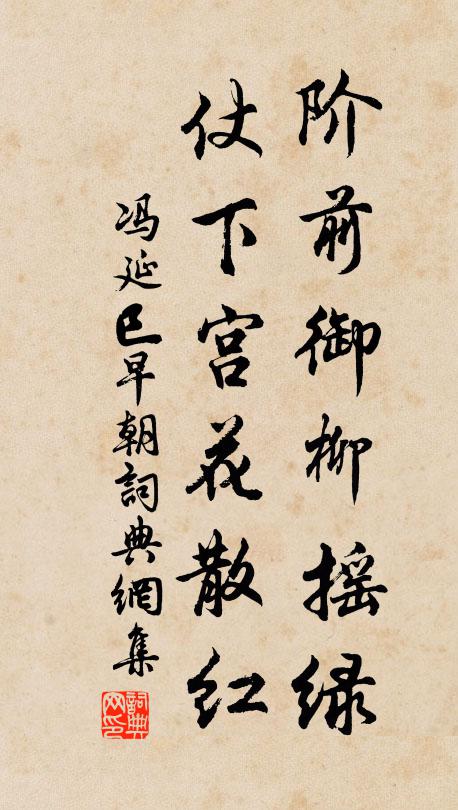 阶前御柳摇绿
仗下宫花散红
冯延巳早朝詞典網集
詞典网印